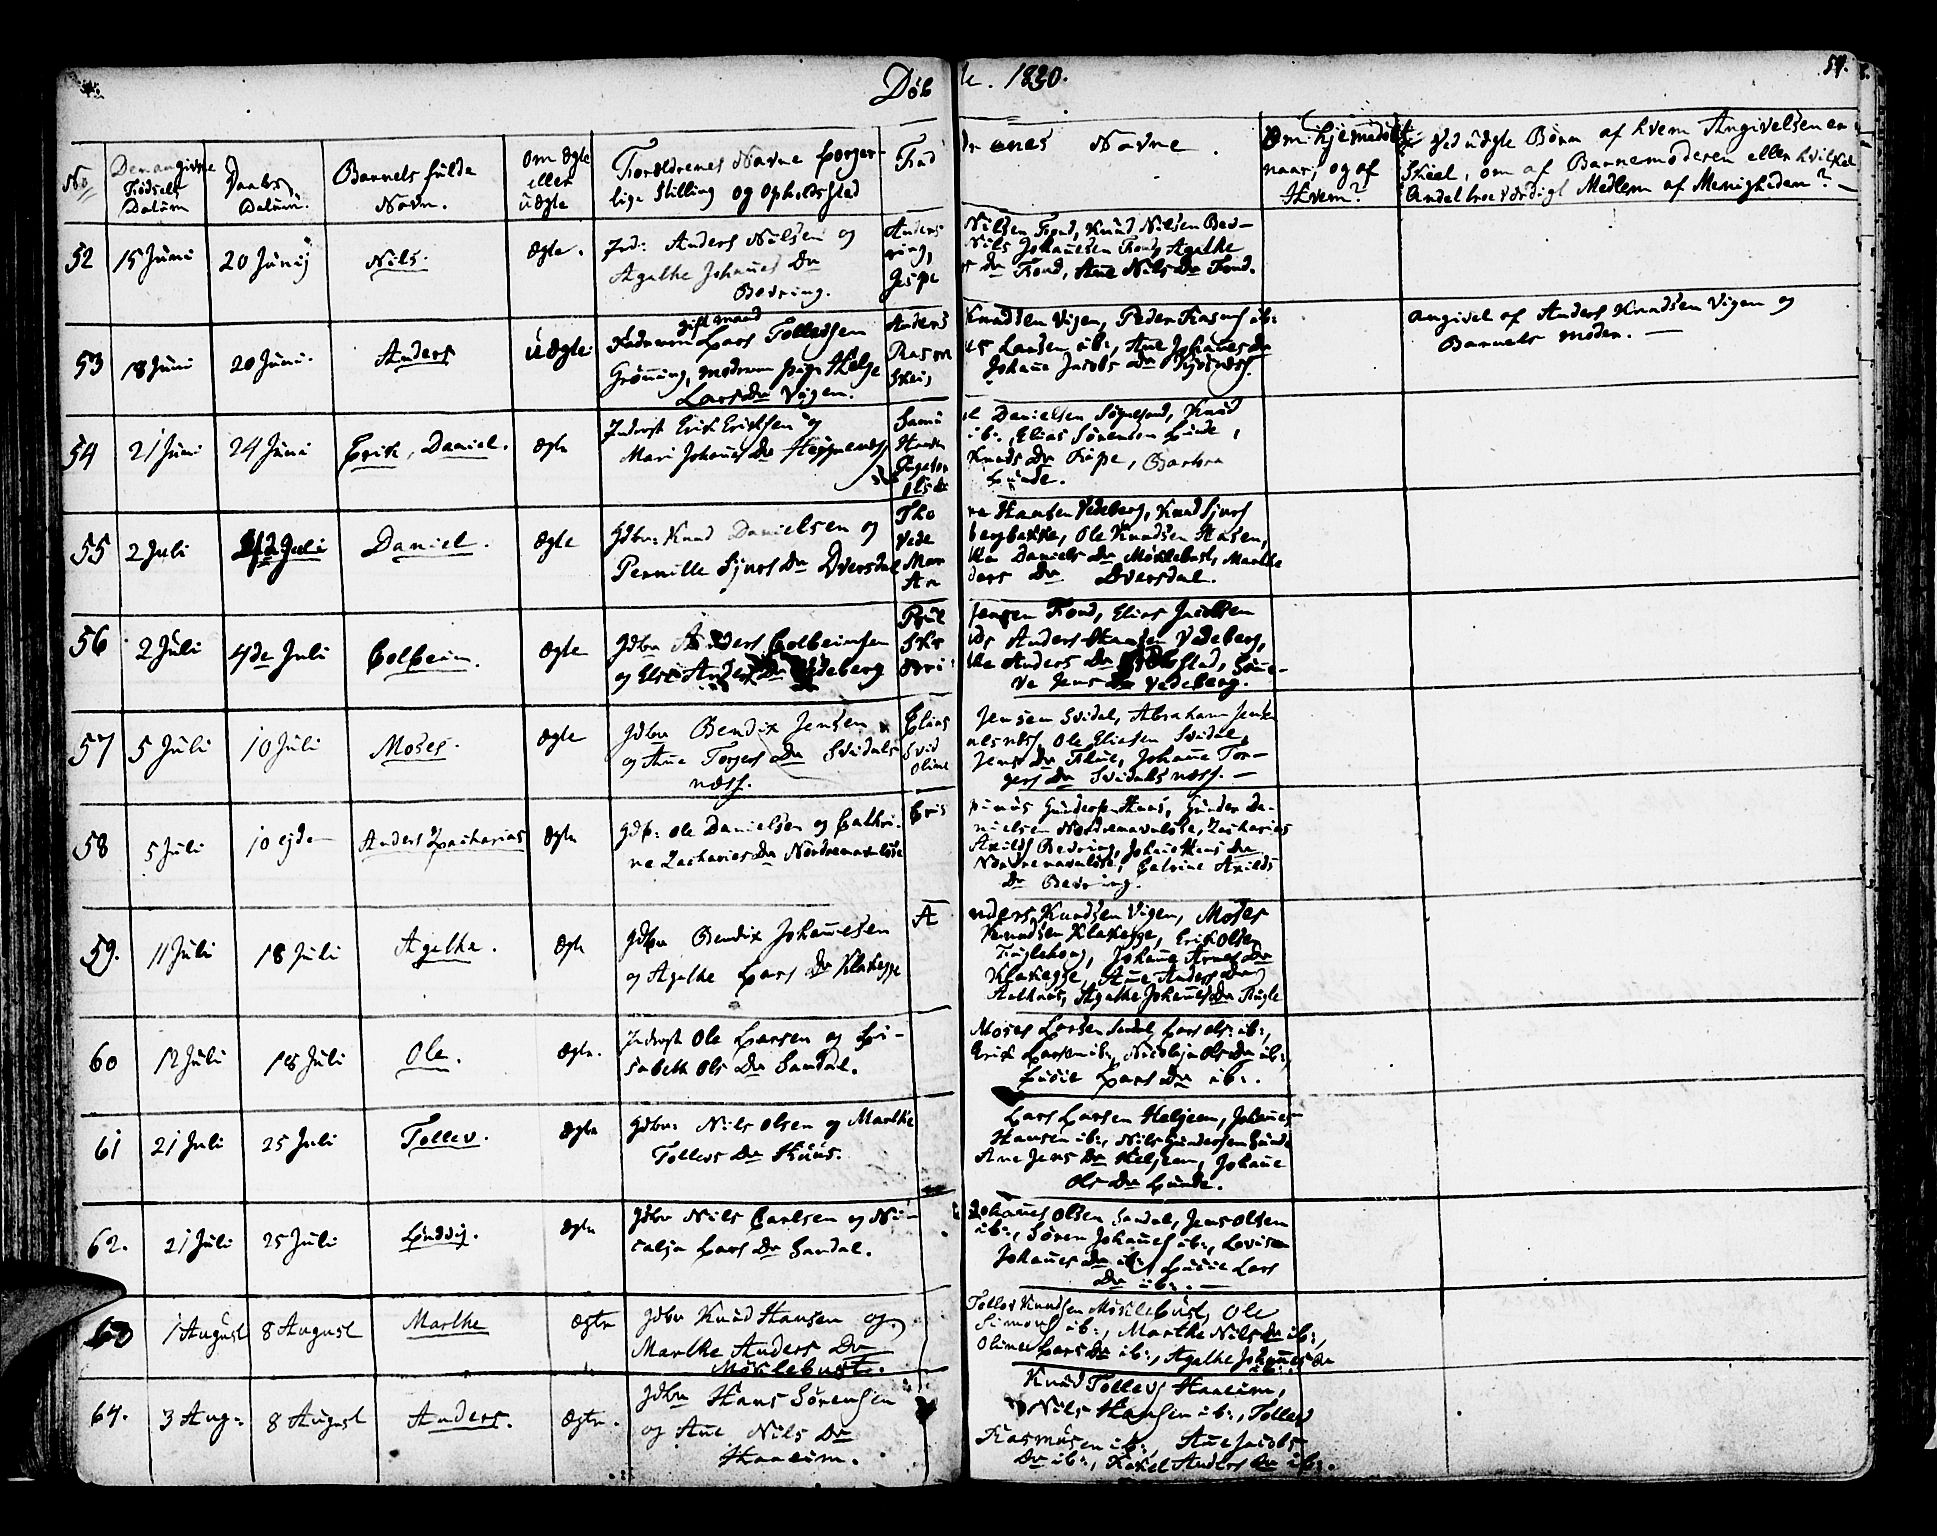 Døb
te. 1830.
54.
No
Den angivne
Fødsels
Datum
Daabs
Datum.
Barnets fulde
Navn.
Om Ægte
eller
Uægte
Foreldrenes Navne borger-
lige Stilling og Opholdssted
Fad
drenes Navne.
Om hjemmedøbt
naar, og af
Hvem?
Ved uægte Børn af hvem Angivelsen er
skeet, om af Barnemoderen eller hvilket
Andet troeværdigt Medlem af Menigheden? —
52 15 Juni 20 Junij Nils. Ægte.
Anders Nilsen og
Agathe Johannes Dr
Bovring.
Anders
ring,
Jespe
Nilsen Fond, Knud Nilsen Bov-
Nils Johannesen Fond, Agathe
s Dr Fond, Ane Nils Dr Fond.
53 18 Juni 20 Juni. Anders Uægte
gift mand
Faderen Lars Tollevsen
Grønning, moderen pige Helge
Lars Dr Vigen.
Anders
Rasm
Skei,
Knudsen Vigen, Peder Rasmus ib:
Larsen ib:, Ane Johannes Dr
Johanne Jacobs Dr
angivet af Anders Knudsen Vigen og
Barnets moder. —
54 21 Juni 24 Juni Erik, Daniel. Ægte
Inderst Erik Eriksen og
Mari Johannes Dr
Samu
Hansen
Ingebor
Ols Dr
el Danielsen Søgnesand, Knud
ib:, Elias Sørensen Lunde,
Knuds Dr Fope, Barbra
Lunde.
55 2 Juli 4de Juli Daniel. Ægte
Gdbr: Knud Danielsen og
Pernille Sjurs Dr Dversdal
Tho
Vede
Mar
An
re Hansen Vedeberg, Knud Sjurs
bergbakke, Ole Knudsen Aasen,
the Daniels Dr Møsklebust, Marthe
ders Dr Dversdal.
56 2 Juli 4de Juli Colbein. Ægte
Gdbr Anders Colbeinsen
og Else Anders Dr Vedeberg
Poul
Jensen Fond, Elias Jacobsen
Anders Hansen Vedeberg,
the Anders Dr
ve Jens Dr Vedeberg.
57 5 Juli 10 Juli Moses. Ægte
Gdbr Bendix Jensen
og Ane Torgers Dr Svidals
næss.
Elias
Svid
Oline
Jensen Svidal, Abraham Jensen
alsnæss, Ole Eliasen Svidal,
Jens Dr Flue, Johanne Tor-
gers Dr Svidalsnæss. —
58 5 Juli 10 ejde Anders Zacharias Ægte
Gdb: Ole Danielsen og Cathri-
ne Zacharies Dr Nordrenavnløse
Cris
pinus Gundersen Huus, Gunder Da-
nielsen Nordrenavnløse, Zacharias
Axilds Bovring, Johanne Hans Dr
Nordrenavnløse, Catrine Axilds
Dr Bovring.
59. 11 Juli 18 Juli Agathe. Ægte
Gdbr Bendix Johannesen
og Agathe Lars Dr Klakegge
A
nders Knudsen Vigen, Moses
Knudsen Klakegge, Erik Olsen
Fuglehoug, Johanne Arnes Dr
Klakegge, Ane Anders Dr
Aalhuus, Agathe Johannes Dr Fugle
60 12 Juli 18 Juli Ole. Ægte.
Inderst Ole Larsen og Li-
sabeth Ols Dr Sandal.
Moses Larsen Sandal, Lars Ols: ib:,
Erik Larsen ib:, Nicoline Ols Dr ib:,
Lucie Lars Dr ib:.
61 21 Juli 25 Juli Tollev. Ægte
Gdbr: Nils Olsen og Marthe
Tollevs Dr Huus.
Lars Larsen Helgeem, Johannes
Hansen ib:, Nils Gundersen Lunde
Ane Jens Dr Helgeem, Johanne
Ols Dr Lunde.
62. 21 Juli 25 Juli Ludvig. Ægte
Gdbr Nils Carlsen og Ni-
calja Lars Dr Sandal.
Johannes Olsen Sandal, Jens Olsen
ib:, Søren Johannes ib:, Lovise
Johannes Dr ib:, Lucie Lars
Dr ib:. —
63 1 August 8 August Marthe Ægte
Gdbr Knud Hansen og
Marthe Anders Dr
Møsklebust.
Tollev Knudsen Møsklebust, Ole
Simons ib:, Marthe Nils Dr ib:,
Oline Lars Dr ib:, Agathe Johannes Dr
ib:.
64. 3 Aug: 8 August Anders. Ægte.
Gdbr Hans Sørensen
og Ane Nils Dr
Haaeim.
Knud Tollevs Haaeim,
Nils Hansen ib:, Tollev
Rasmusen ib:, Ane Jacobs
Dr ib:, Anders Dr ib:.